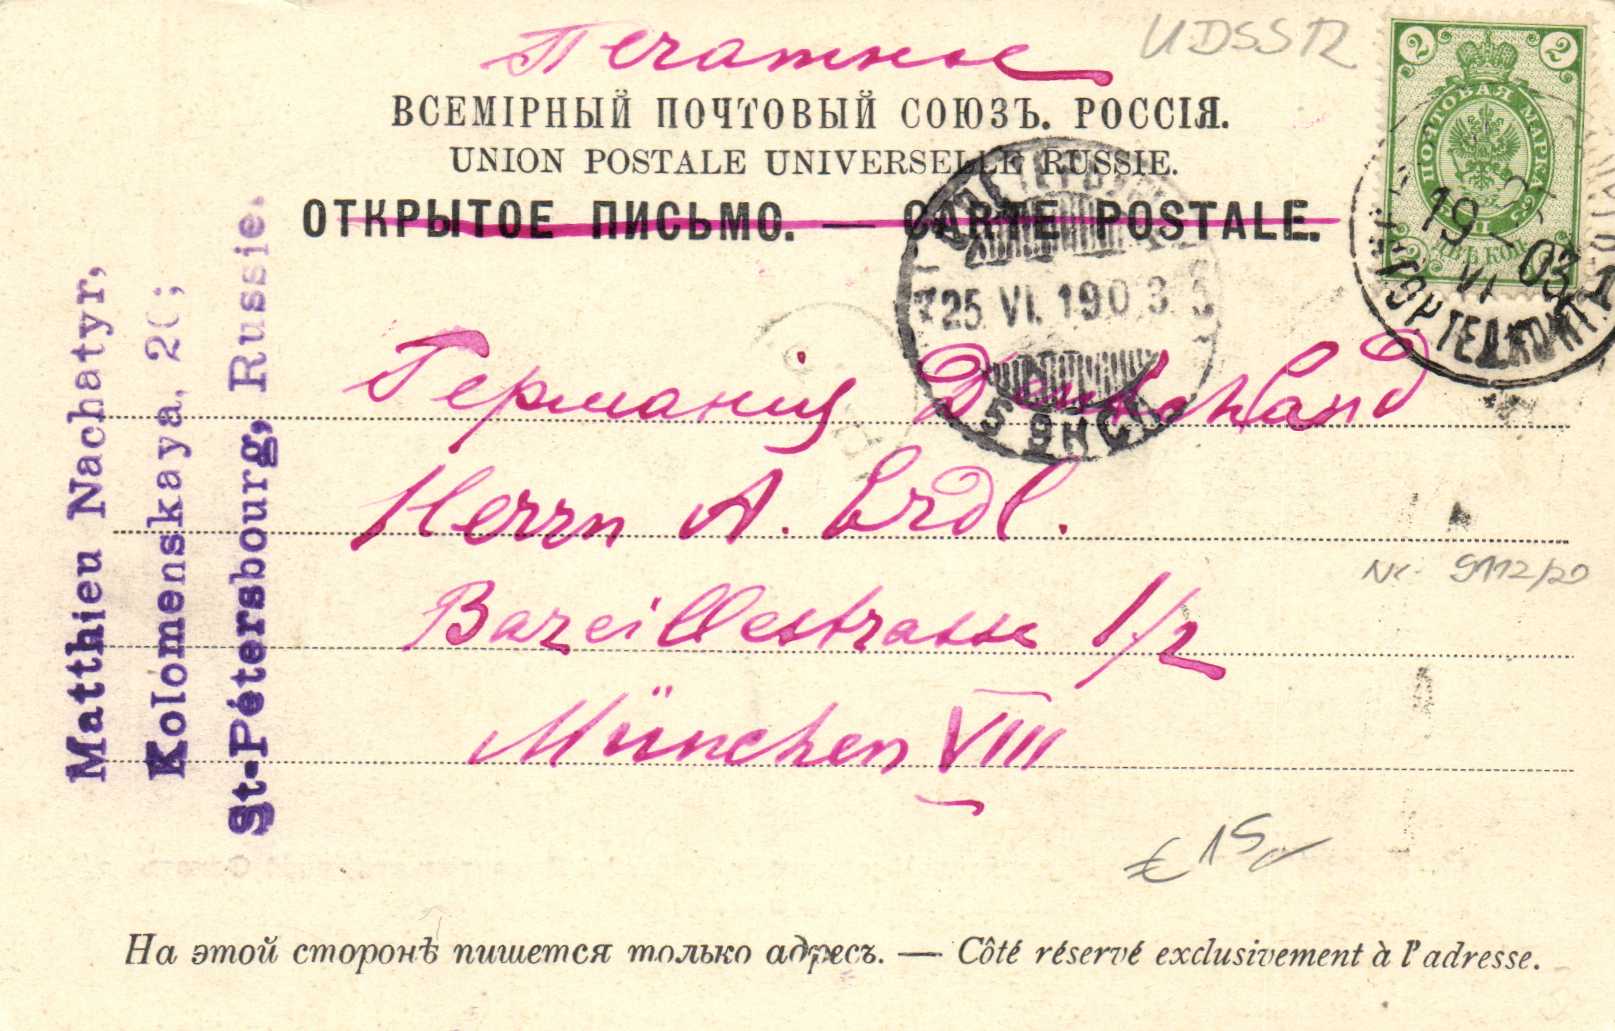 Печатное
UDSSR
ВСЕМІРНЫЙ ПОЧТОВЫЙ СОЮЗЪ. РОССІЯ.
UNION POSTALE UNIVERSELLE RUSSIE.
ОТКРЫТОЕ ПИСЬМО. — CARTE POSTALE.
2 2
ПОЧТОВАЯ МАРКА
ДВѢ КОП.
19 VI 03
25 VI. 1903
Германія Deutschland
Herrn A. Erdl.
Bazeillestrasse 1/2
München VIII
Matthieu Nachatyr,
Kolomenskaya, 20;
St-Pétersbourg, Russie.
Nr. 9112/20
€ 15,-
На этой сторонѣ пишется только адресъ. — Côté réservé exclusivement à l'adresse.